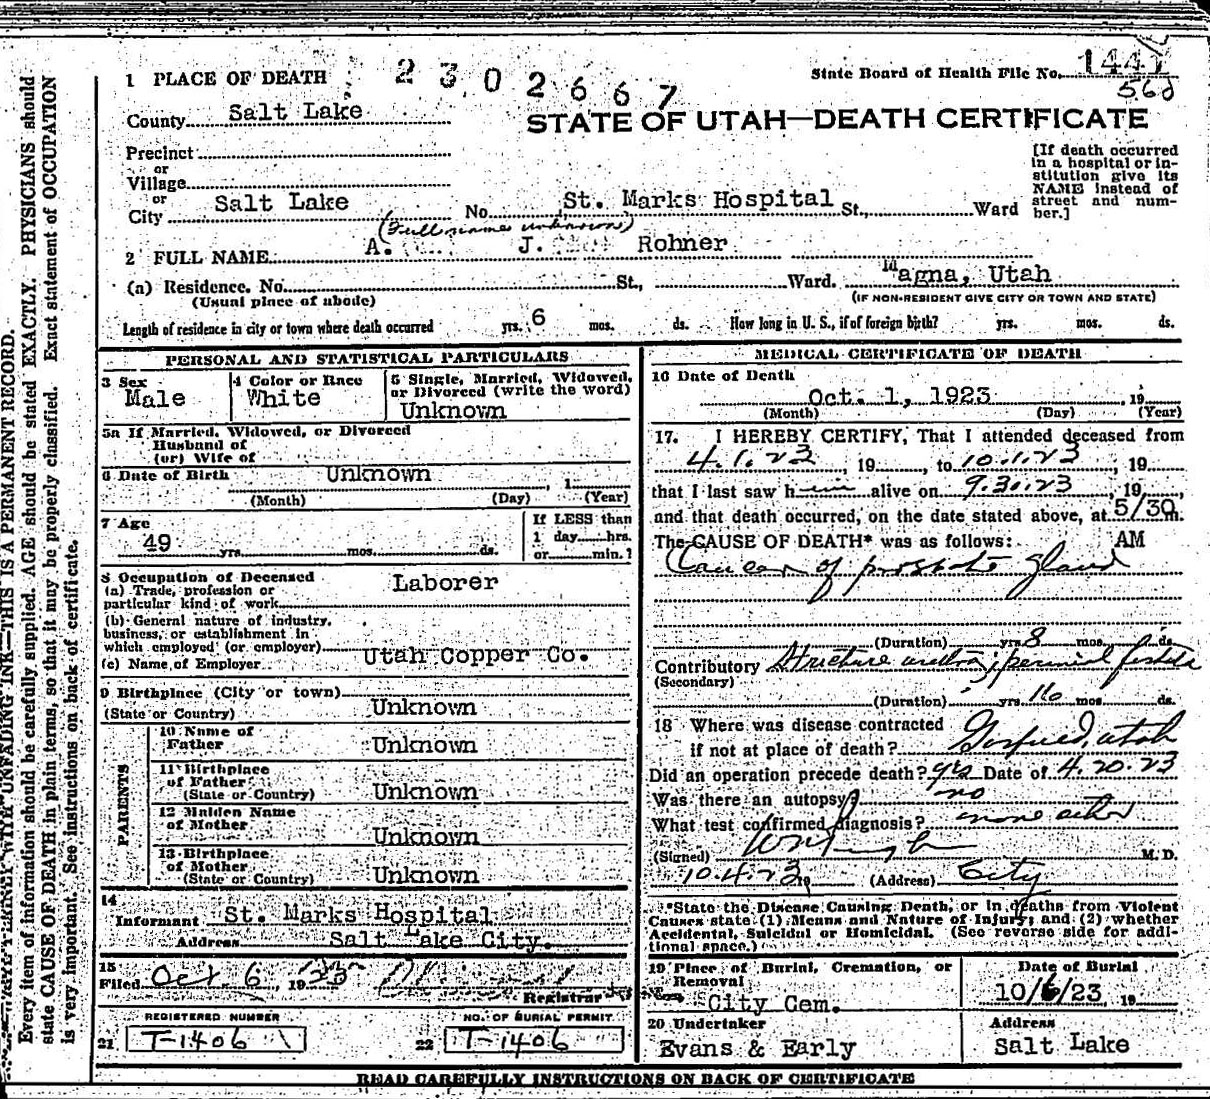 1 PLACE OF DEATH
2302667
State Board of Health File No. 144
County Salt Lake
560
STATE OF UTAH—DEATH CERTIFICATE
Precinct
or
Village
or
City Salt Lake No. St. Marks Hospital St., Ward
[If death occurred
in a hospital or in-
stitution give its
NAME instead of
street and num-
ber.]
(Full names unknown)
2 FULL NAME A. J. Rohner
(a) Residence. No. St., Ward. Magna, Utah
(Usual place of abode) (IF NON-RESIDENT GIVE CITY OR TOWN AND STATE)
Length of residence in city or town where death occurred yrs. 6 mos. ds. How long in U. S., if of foreign birth? yrs. mos. ds.
PERSONAL AND STATISTICAL PARTICULARS
3 Sex
Male
4 Color or Race
White
5 Single, Married, Widowed,
or Divorced (write the word)
Unknown
5a If Married, Widowed, or Divorced
Husband of
(or) Wife of
6 Date of Birth Unknown , 1
(Month) (Day) (Year)
7 Age
49 yrs. mos. ds.
If LESS than
1 day hrs.
or min.?
8 Occupation of Deceased
(a) Trade, profession or
particular kind of work Laborer
(b) General nature of industry,
business, or establishment in
which employed (or employer)
(c) Name of Employer Utah Copper Co.
9 Birthplace (City or town)
(State or Country) Unknown
PARENTS
10 Name of
Father Unknown
11 Birthplace
of Father
(State or Country) Unknown
12 Maiden Name
of Mother Unknown
13 Birthplace
of Mother
(State or Country) Unknown
14
Informant St. Marks Hospital
Address Salt Lake City.
15
Filed Oct 6, 1923
Registrar
REGISTERED NUMBER
21 T-1406
NO. OF BURIAL PERMIT
22 T-1406
MEDICAL CERTIFICATE OF DEATH
16 Date of Death
Oct. 1, 1923 , 19
(Month) (Day) (Year)
17. I HEREBY CERTIFY, That I attended deceased from
4.1.23, 19 , to 10.1.23, 19
that I last saw him alive on 9.30.23, 19 ,
and that death occurred, on the date stated above, at 5/30 m.
The CAUSE OF DEATH* was as follows: AM
Cancer of prostate gland
(Duration) yrs. 8 mos. ds.
Contributory Stricture urethra, perineal fistula
(Secondary)
(Duration) yrs. mos. ds.
18 Where was disease contracted
if not at place of death? Garfield, Utah
Did an operation precede death? yes Date of 4.20.23
Was there an autopsy? no
What test confirmed diagnosis? none other
(Signed) M. D.
10.4.23 19 (Address) City
*State the Disease Causing Death, or in deaths from Violent
Causes state (1) Means and Nature of Injury; and (2) whether
Accidental, Suicidal or Homicidal. (See reverse side for addi-
tional space.)
19 Place of Burial, Cremation, or
Removal
City Cem.
Date of Burial
10/6/23 19
20 Undertaker
Evans & Early
Address
Salt Lake
READ CAREFULLY INSTRUCTIONS ON BACK OF CERTIFICATE
WITH UNFADING INK—THIS IS A PERMANENT RECORD.
Every item of information should be carefully supplied. AGE should be stated EXACTLY. PHYSICIANS should
state CAUSE OF DEATH in plain terms, so that it may be properly classified. Exact statement of OCCUPATION
is very important. See instructions on back of certificate.